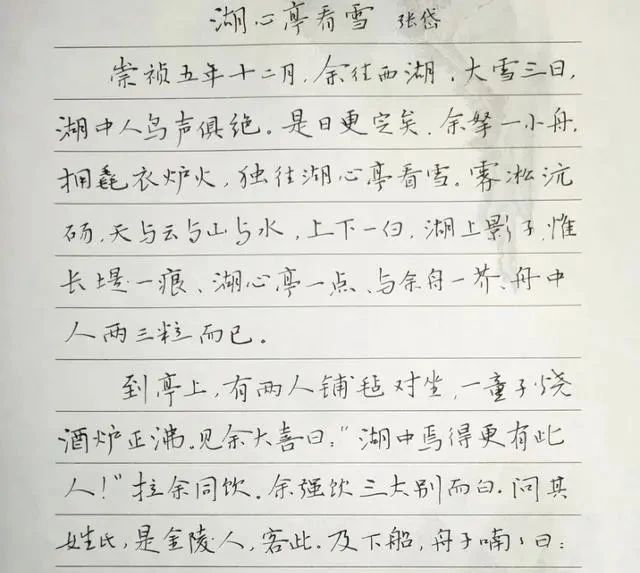 湖心亭看雪 张岱
崇祯五年十二月,余往西湖.大雪三日,
湖中人鸟声俱绝。是日更定矣.余拏一小舟,
拥毳衣炉火,独往湖心亭看雪.雾凇沆
砀,天与云与山与水,上下一白,湖上影子,惟
长堤一痕、湖心亭一点、与余舟一芥、舟中
人两三粒而已.
到亭上,有两人铺毡对坐,一童子烧
酒炉正沸.见余大喜曰:“湖中焉得更有此
人!”拉余同饮.余强饮三大别而白.问其
姓氏,是金陵人,客此.及下船,舟子喃、曰: